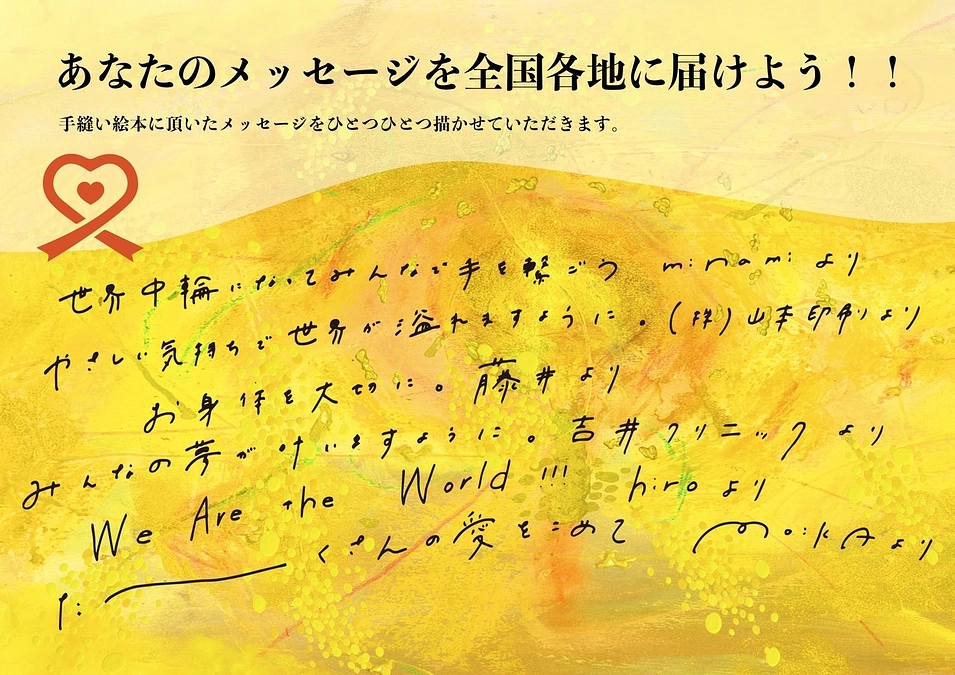 あなたのメッセージを全国各地に届けよう！！
手縫い絵本に頂いたメッセージをひとつひとつ描かせていただきます。
世界中輪になってみんなで手を繋ごう minami より
やさしい気持ちで世界が溢れますように。(株)山本印刷より
お身体を大切に。藤井より
みんなの夢が叶いますように。吉井クリニック より
We Are the World !!! hiro より
た くさんの愛をこめて より